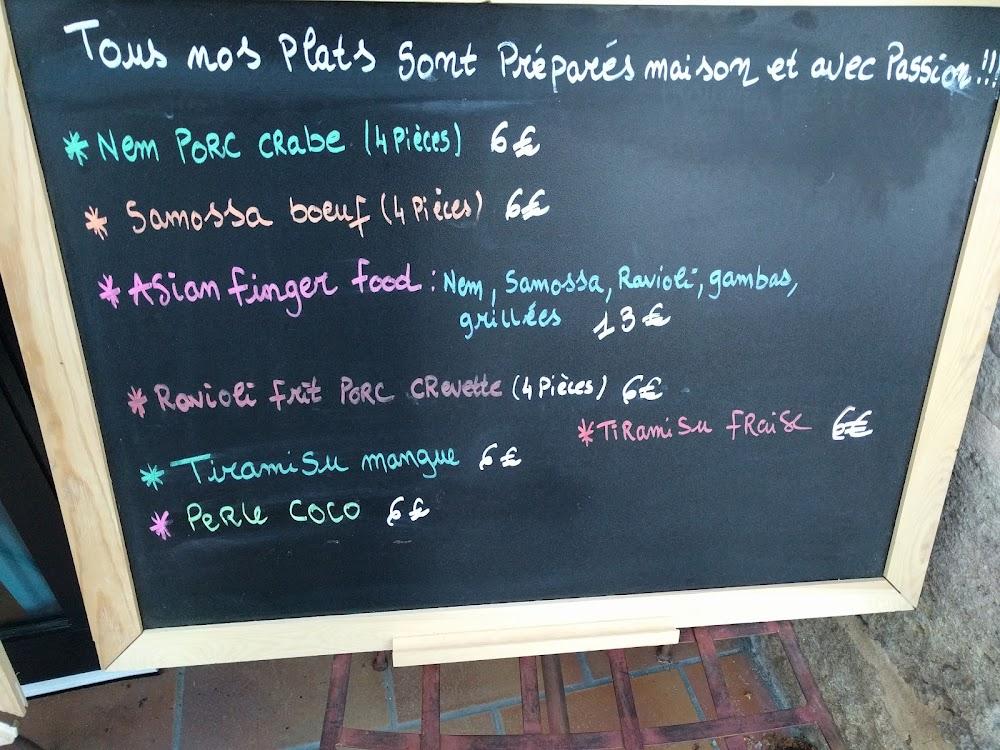 Tous nos Plats sont Préparés maison et avec Passion !!!
* Nem Porc crabe (4 Pièces) 6€
* Samossa boeuf (4 Pièces) 6€
* Asian finger food : Nem, Samossa, Ravioli, gambas,
grillées 13€
* Ravioli frit Porc Crevette (4 Pièces) 6€
* Tiramisu fraise 6€
* Tiramisu mangue 6€
* Perle coco 6€